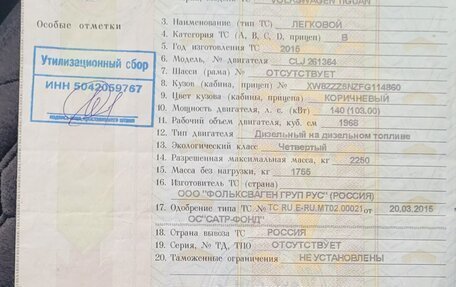 VOLKSWAGEN TIGUAN
Особые отметки
Утилизационный сбор
ИНН 5042059767
3. Наименование (тип ТС) ЛЕГКОВОЙ
4. Категория ТС (А, В, С, D, прицеп) В
5. Год изготовления ТС 2015
6. Модель, № двигателя CLJ 261364
7. Шасси (рама) № ОТСУТСТВУЕТ
8. Кузов (кабина, прицеп) № XW8ZZZ5NZFG114860
9. Цвет кузова (кабины, прицепа) КОРИЧНЕВЫЙ
10. Мощность двигателя, л. с. (кВт) 140 (103.00)
11. Рабочий объем двигателя, куб. см 1968
12. Тип двигателя Дизельный на дизельном топливе
13. Экологический класс Четвертый
14. Разрешенная максимальная масса, кг 2250
15. Масса без нагрузки, кг 1755
16. Изготовитель ТС (страна)
ООО "ФОЛЬКСВАГЕН ГРУП РУС" (РОССИЯ)
17. Одобрение типа ТС № ТС RU E-RU.MT02.00021 от 20.03.2015
ОС "САТР-ФОНД"
18. Страна вывоза ТС РОССИЯ
19. Серия, № ТД, ТПО ОТСУТСТВУЕТ
20. Таможенные ограничения НЕ УСТАНОВЛЕНЫ